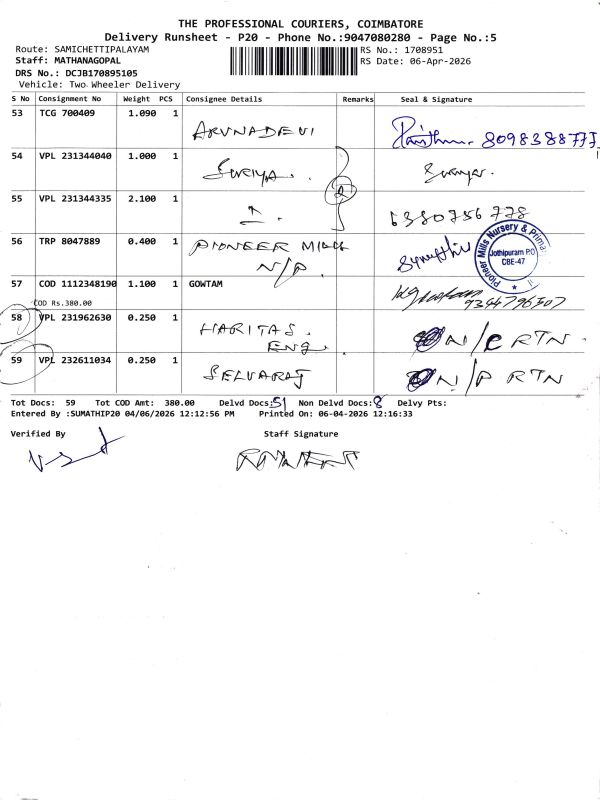 THE PROFESSIONAL COURIERS, COIMBATORE
Delivery Runsheet - P20 - Phone No.:9047080280 - Page No.:5
Route: SAMICHETTIPALAYAM
RS No.: 1708951
Staff: MATHANAGOPAL
RS Date: 06-Apr-2026
DRS No.: DCJB170895105
Vehicle: Two Wheeler Delivery
S No Consignment No Weight PCS Consignee Details Remarks Seal & Signature
53 TCG 700409 1.090 1 ARUNADEVI 8098388777
54 VPL 231344040 1.000 1 Suriya.
55 VPL 231344335 2.100 1 6380756778
56 TRP 8047889 0.400 1 PIONEER MILLS
N/P.
Pioneer Mills Nursery & Prima
Jothipuram P.O
CBE-47
57 COD 1112348190 1.100 1 GOWTAM
COD Rs.380.00
9344796507
58 VPL 231962630 0.250 1 HARITAS. N/C RTN.
ENG.
59 VPL 232611034 0.250 1 SELVARAJ N/P RTN
Tot Docs: 59 Tot COD Amt: 380.00 Delvd Docs:51 Non Delvd Docs:8 Delvy Pts:
Entered By :SUMATHIP20 04/06/2026 12:12:56 PM Printed On: 06-04-2026 12:16:33
Verified By Staff Signature